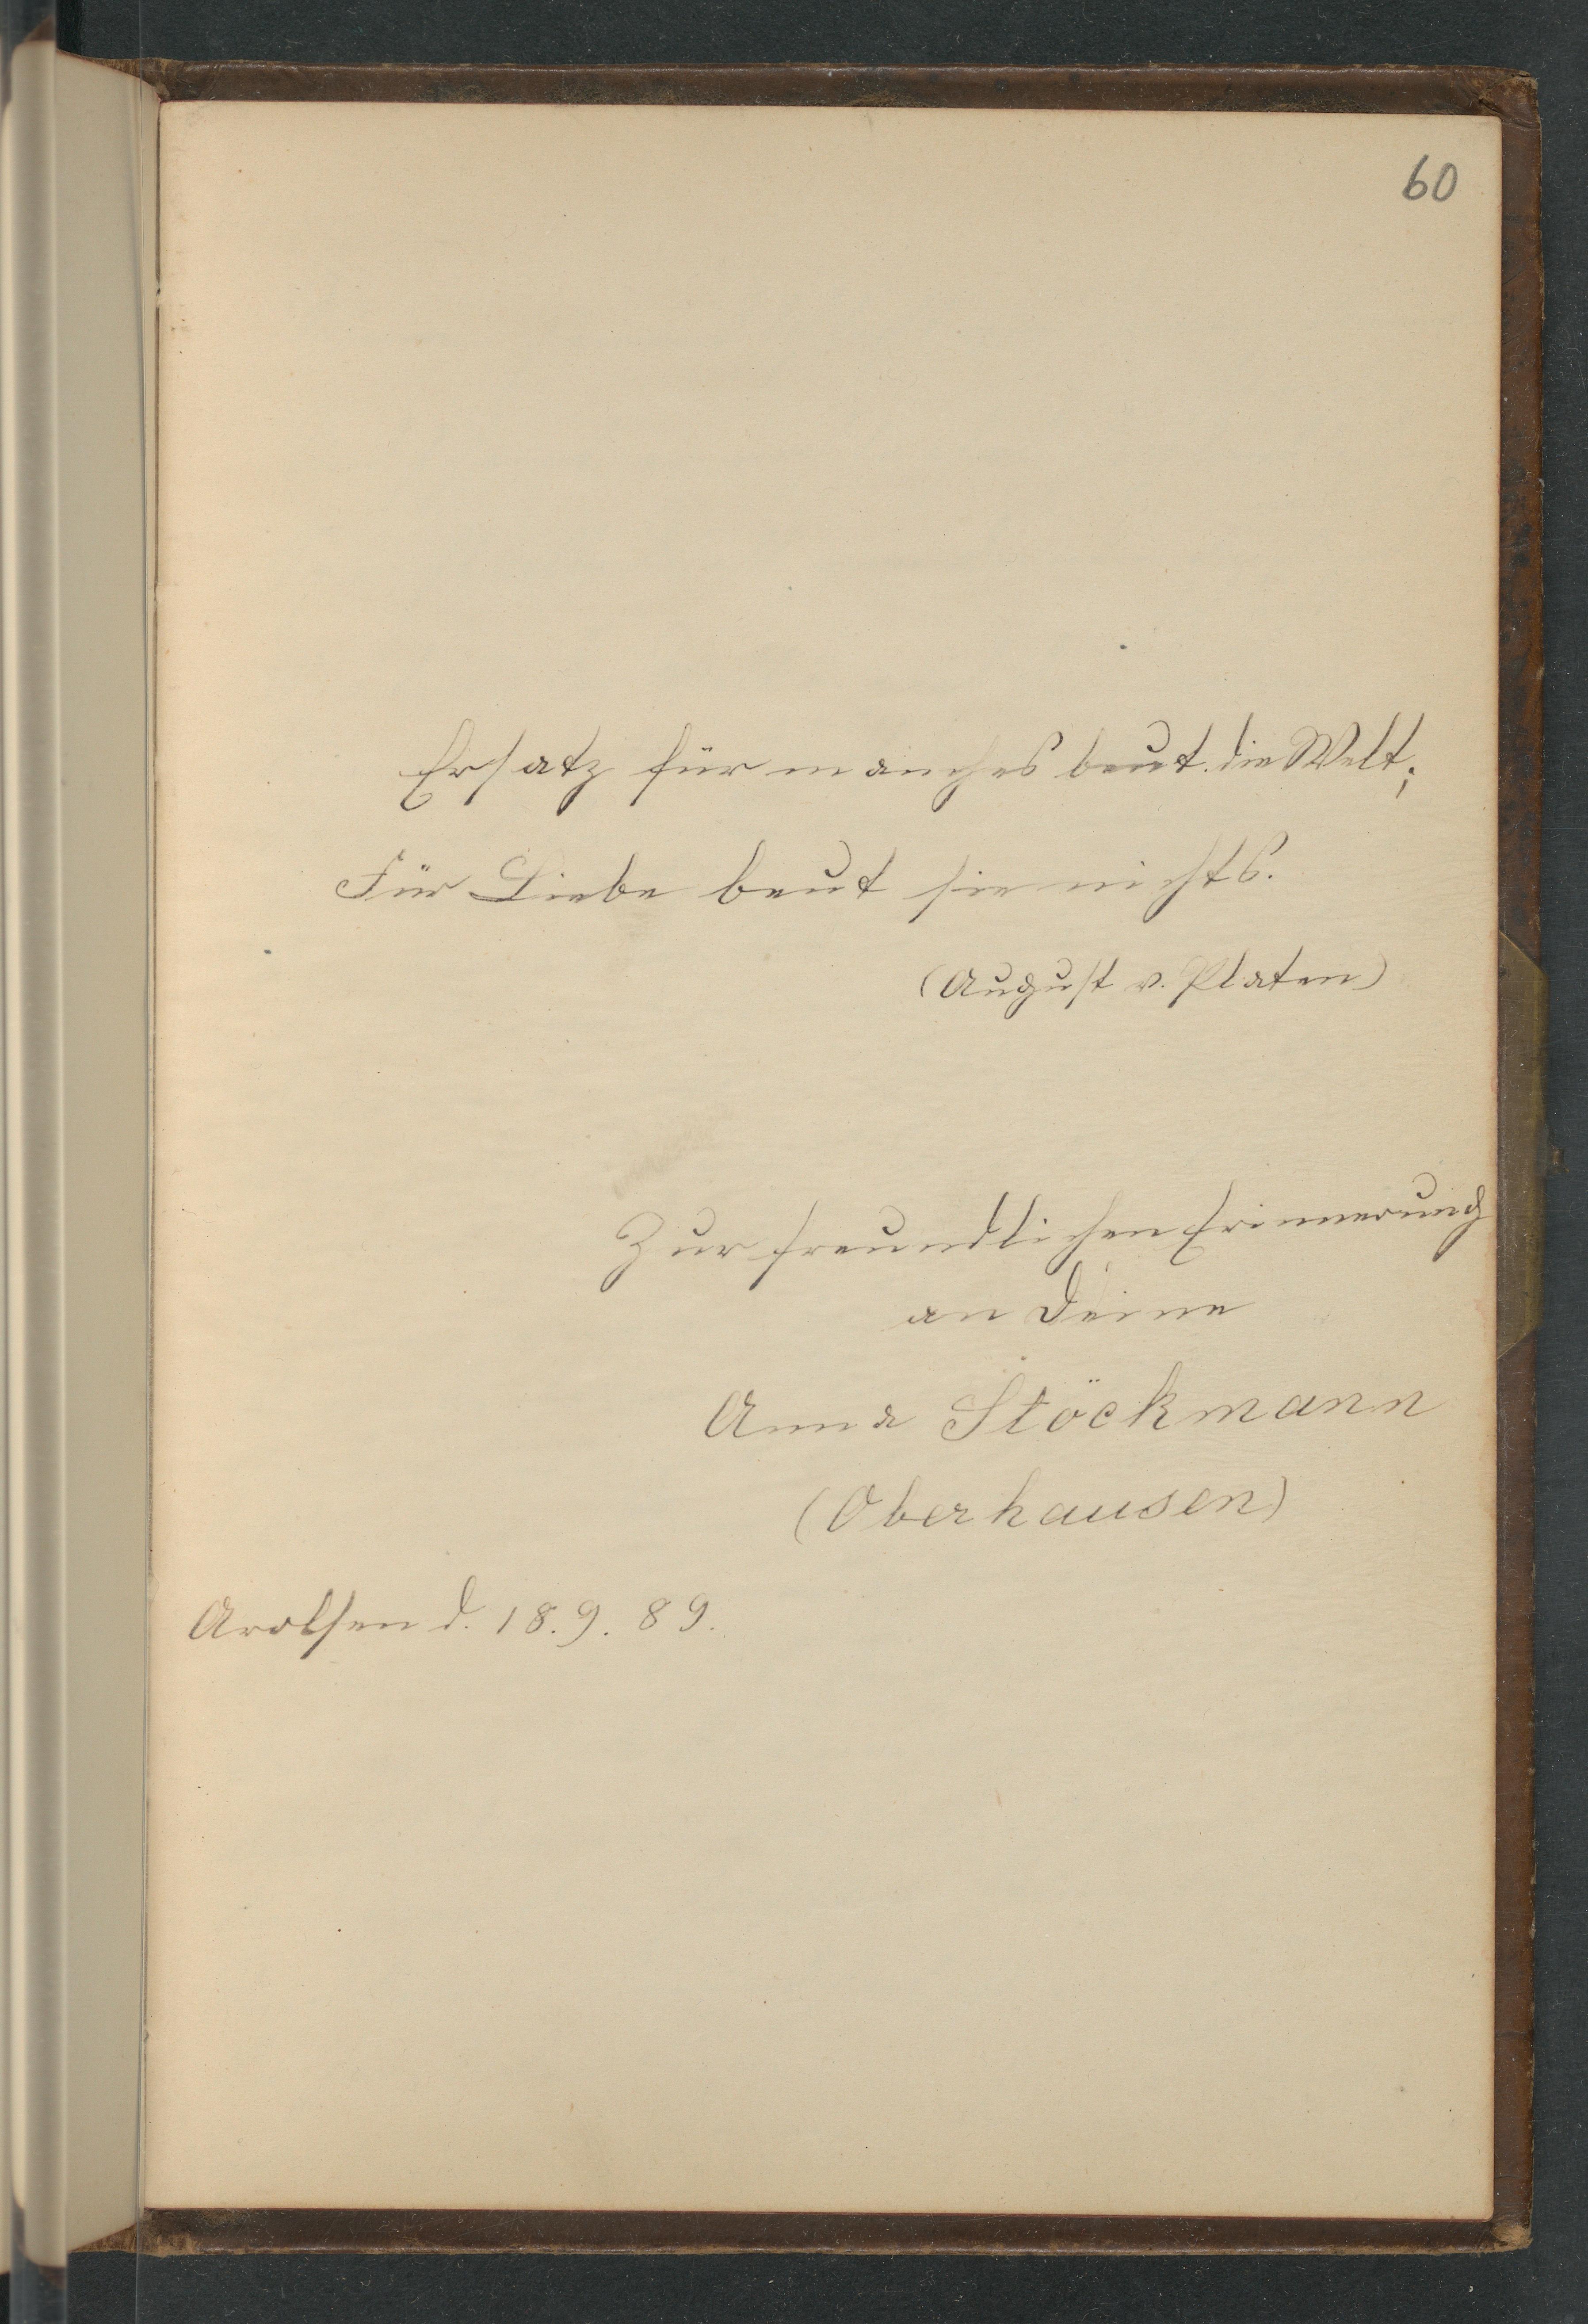 60
Ersatz für manches beut die Welt;
Für Liebe beut sie nichts.
(August v. Platen)
Zur freundlichen Erinnerung
an Deine
Anna Stöckmann
(Oberhausen)
Arolsen d. 18. 9. 89.